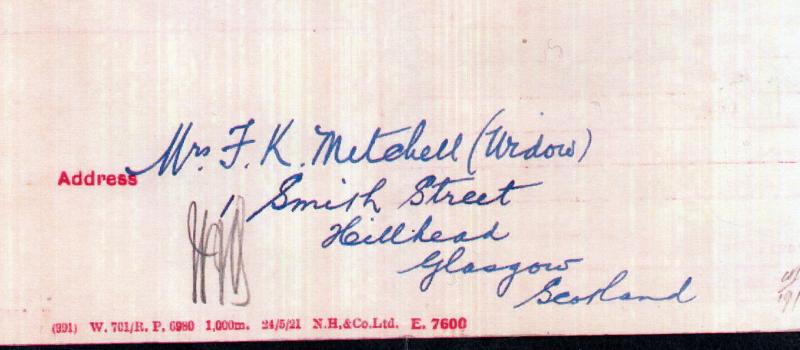 Mrs F. K. Mitchell (Widow)
Address
1 Smith Street
Hillhead
Glasgow
Scotland
(991) W. 701/R. P. 6980 1,000m. 24/5/21 N.H,&Co.Ltd. E. 7600